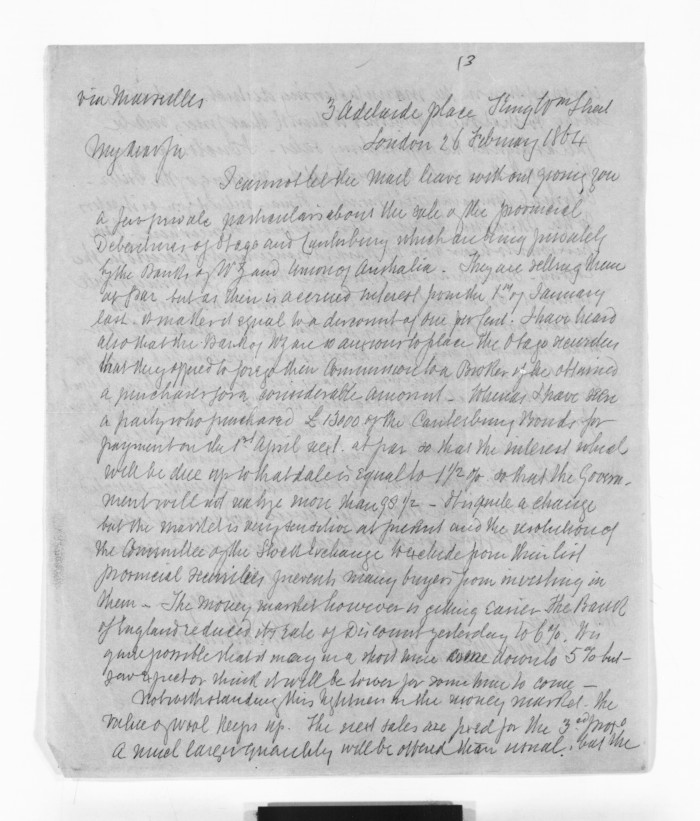 13
via Marseilles
3 Adelaide place King Wm Street
London 26 February 1864
My dear Sir
I cannot let the Mail leave without giving you
a few private particulars about the sale of the Provincial
Debentures of Otago and Canterbury which are being privately
by the Banks of NZ and Union of Australia. They are selling them
at Par but as there is accrued interest from the 1st of January
last it makes it equal to a discount of one per cent. I have heard
also that the Bank of NZ are so anxious to place the Otago securities
that they offered to forego their Commission to a Broker if he obtained
a purchaser for a considerable amount - Whereas I have seen
a party who purchased £13000 of the Canterbury Bonds for
payment on the 1st April next at par so that the interest which
will be due up to that date is equal to 1½ % so that the Govern-
ment will not realize more than 98½ - It is quite a change
but the market is very sensitive at present and the resolution of
the Committee of the Stock Exchange to exclude from their list
Provincial securities prevents many buyers from investing in
them - The money market however is getting easier The Bank
of England reduced its rate of Discount yesterday to 6%. It is
quite possible that it may in a short time come down to 5% but
I do not think it will be lower for some time to come -
Notwithstanding this tightness in the money market the
value of wool keeps up. The next sales are fixed for the 3rd
A much larger quantity will be offered than usual, but the